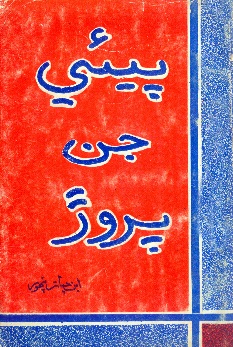 پيئي
جن
پروڙ